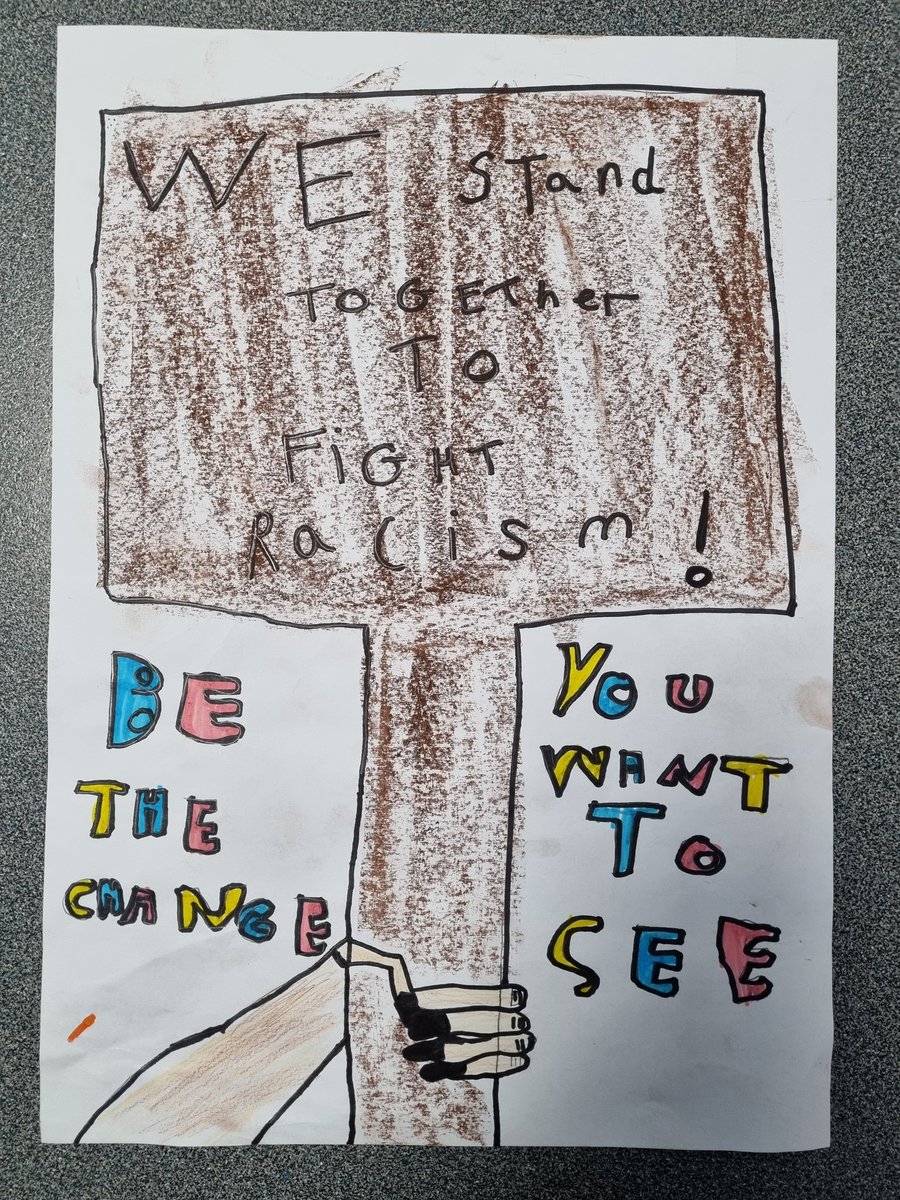 WE Stand
TOGETher
TO
FiGHT
Racism!
BE
THE
CHANGE
YOU
WANT
TO
SEE